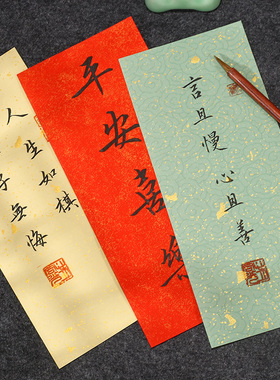 人生如棋
子無悔
平安喜樂
言且慢心且善